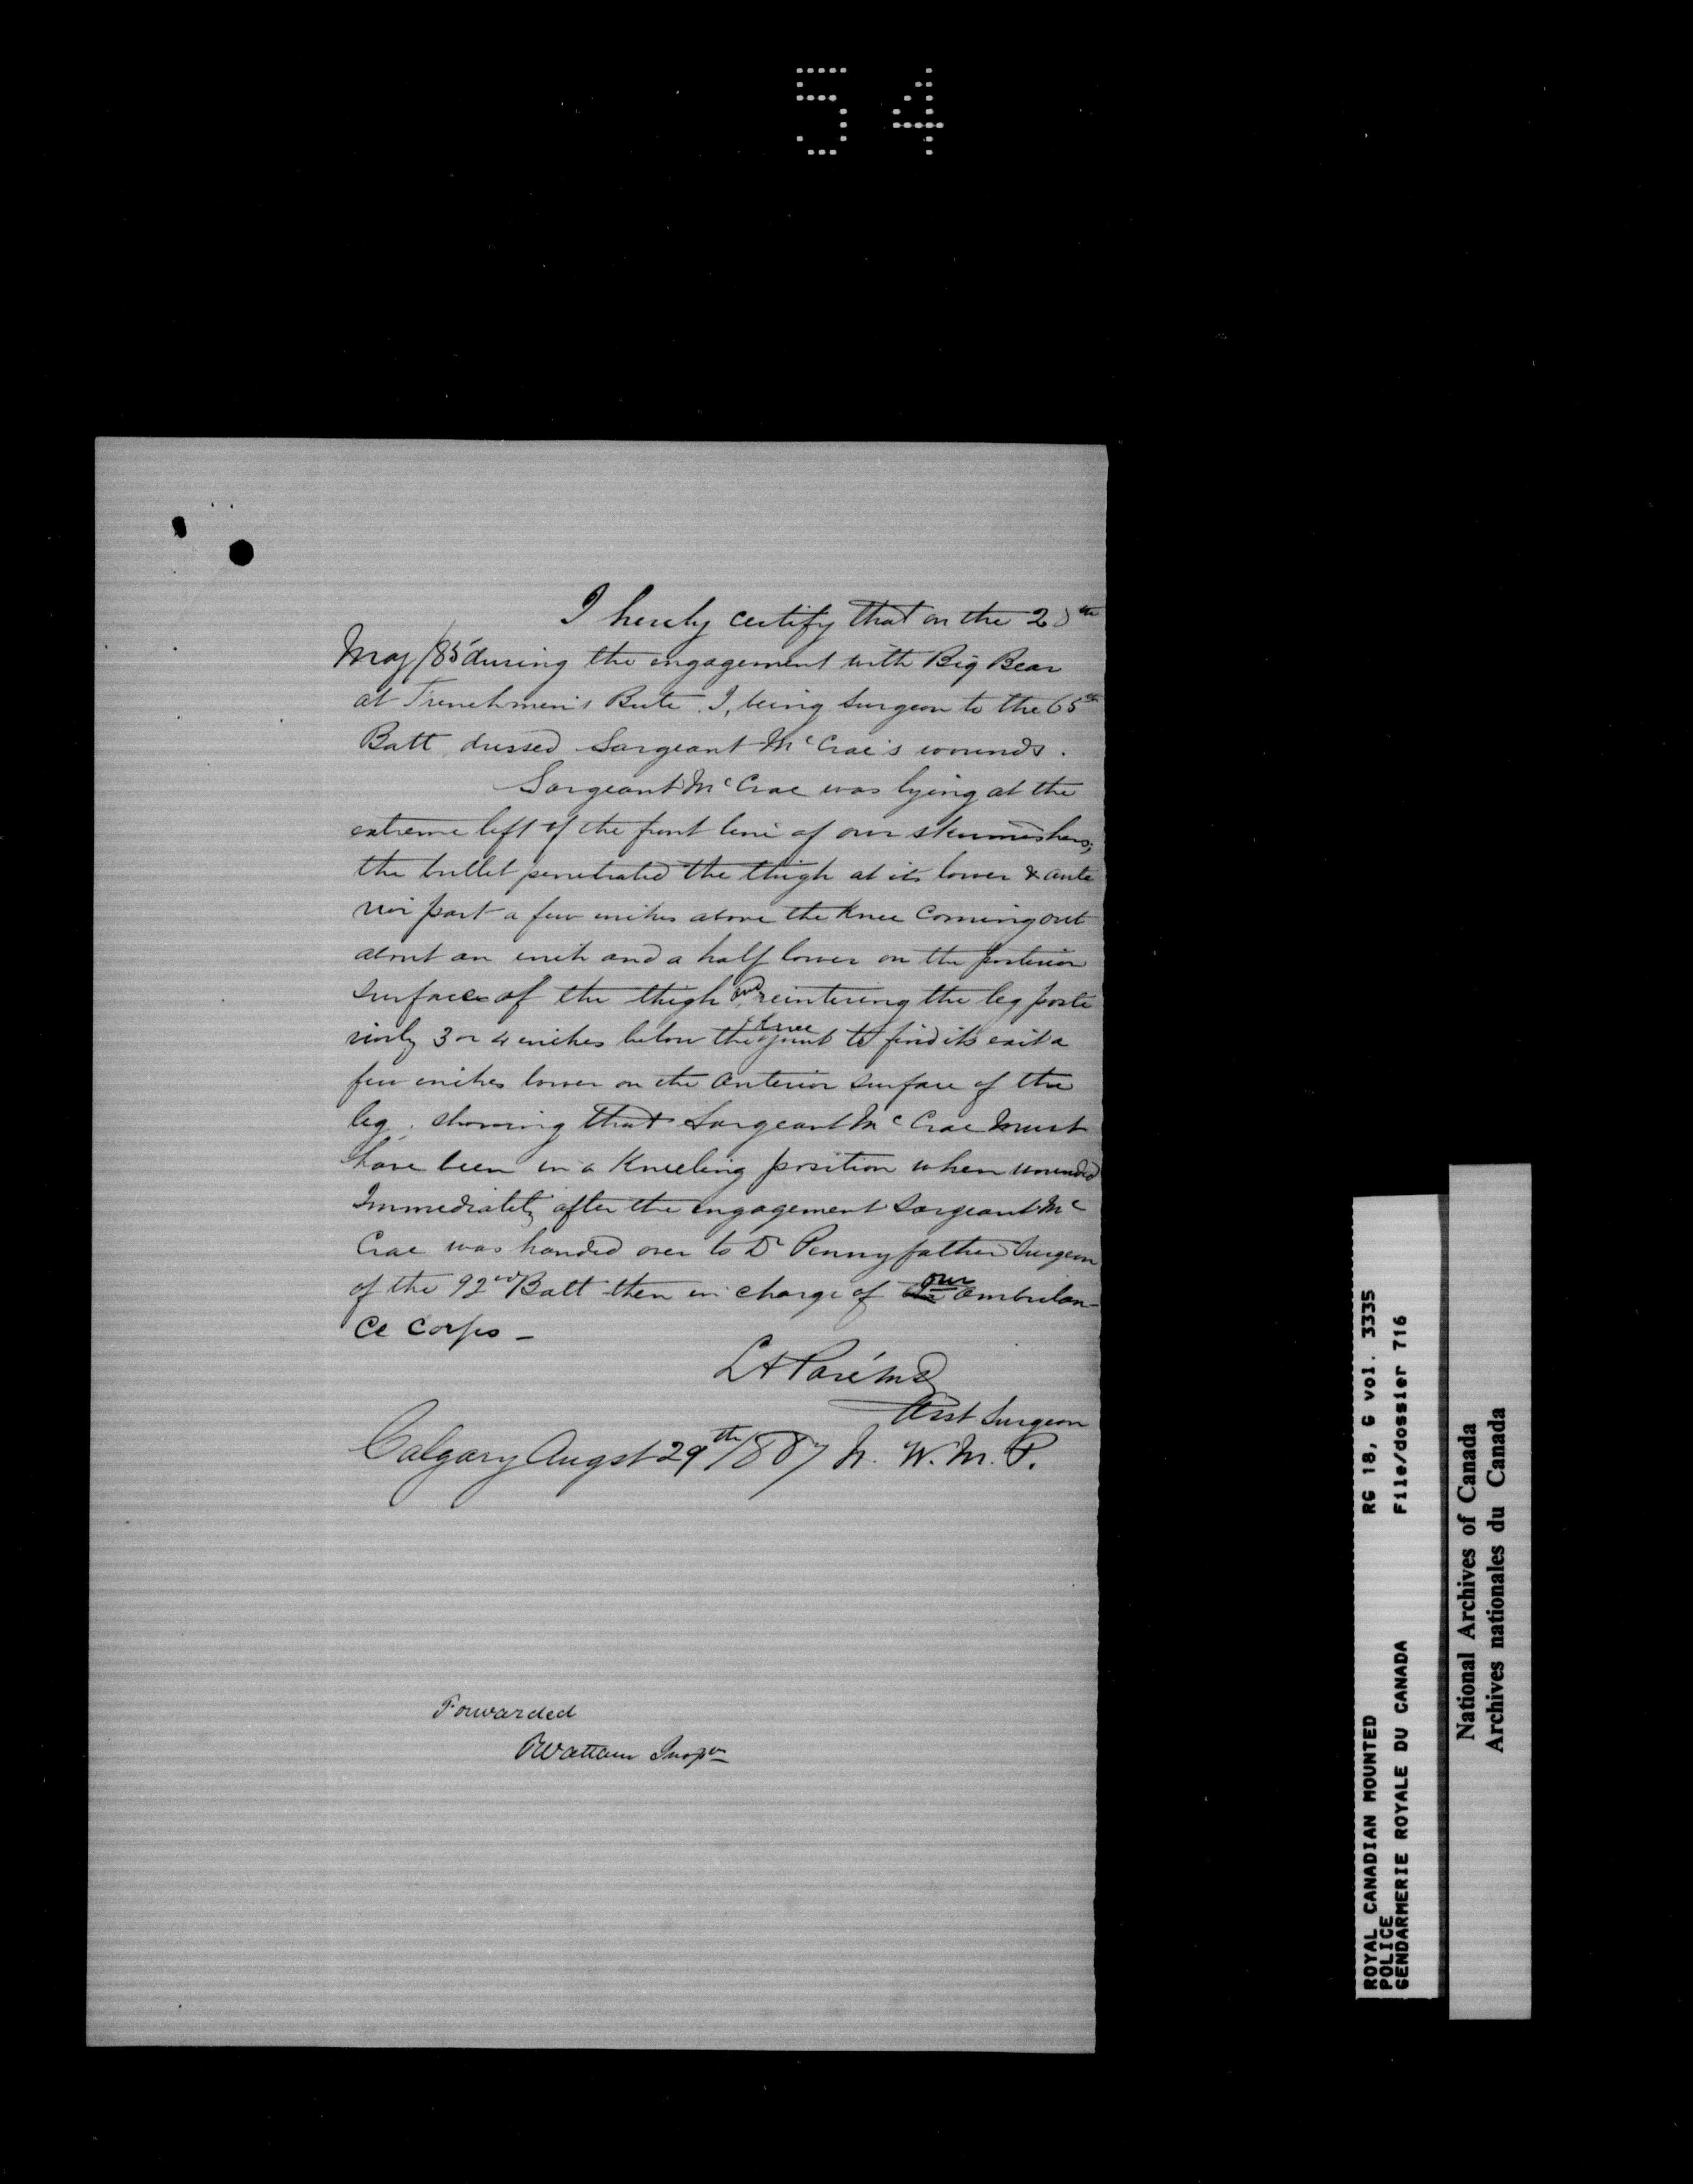 54
I hereby certify that on the 28th
May /85 during the engagement with Big Bear
at Frenchmen's Bute. I, being Surgeon to the 65th
Batt, dressed Sargeant McCrae's wounds.
Sargeant McCrae was lying at the
extreme left of the front line of our skirmishers;
the bullet penetrated the thigh at its lower & ante
rior part a few inches above the Knee Coming out
about an inch and a half lower on the posterior
surface of the thigh and reintering the leg poste
riorly 3 or 4 inches below the knee joint to find its exit a
few inches lower on the anterior surface of the
leg; showing that Sargeant McCrae must
have been in a Kneeling position when wounded
Immediately after the engagement Sargeant Mc
Crae was handed over to Dr Pennyfather Surgeon
of the 92nd Batt then in charge of our ambulan-
ce corps -
LA Paré MD
Asst Surgeon
Calgary Augst 29th/1887 N. W. M. P.
Forwarded
Wattam Inspr
ROYAL CANADIAN MOUNTED RG 18, G vol. 3335
POLICE
GENDARMERIE ROYALE DU CANADA File/dossier 716
National Archives of Canada
Archives nationales du Canada